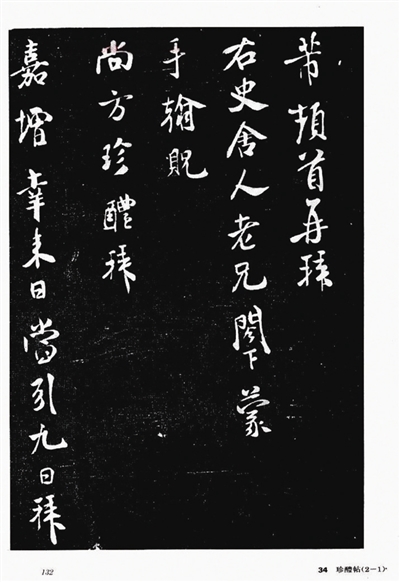 芾頓首再拜
右史舍人老兄閣下蒙
手翰貺
尚方珍醴拜
嘉增幸来日當引九日拜
132
34 珍醴帖(2-1)